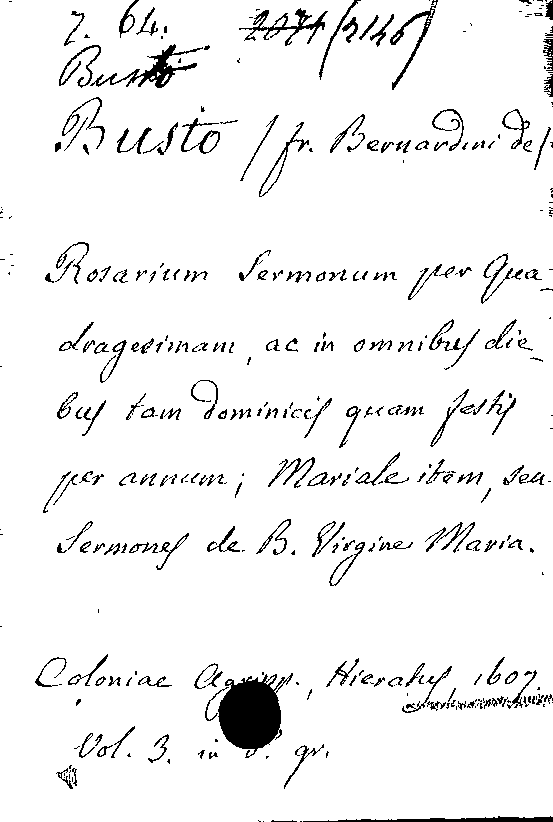 7. 64. 2071 (2146)
Busto
Busto / fr. Bernardini de /
Rosarium Sermonum per Qua-
dragesimam, ac in omnibus die-
bus tam dominicis quam festis
per annum; Mariale item, seu
Sermones de B. Virgine Maria.
Coloniae Agripp., Hieratus, 1607.
Vol. 3. in 8. gr.